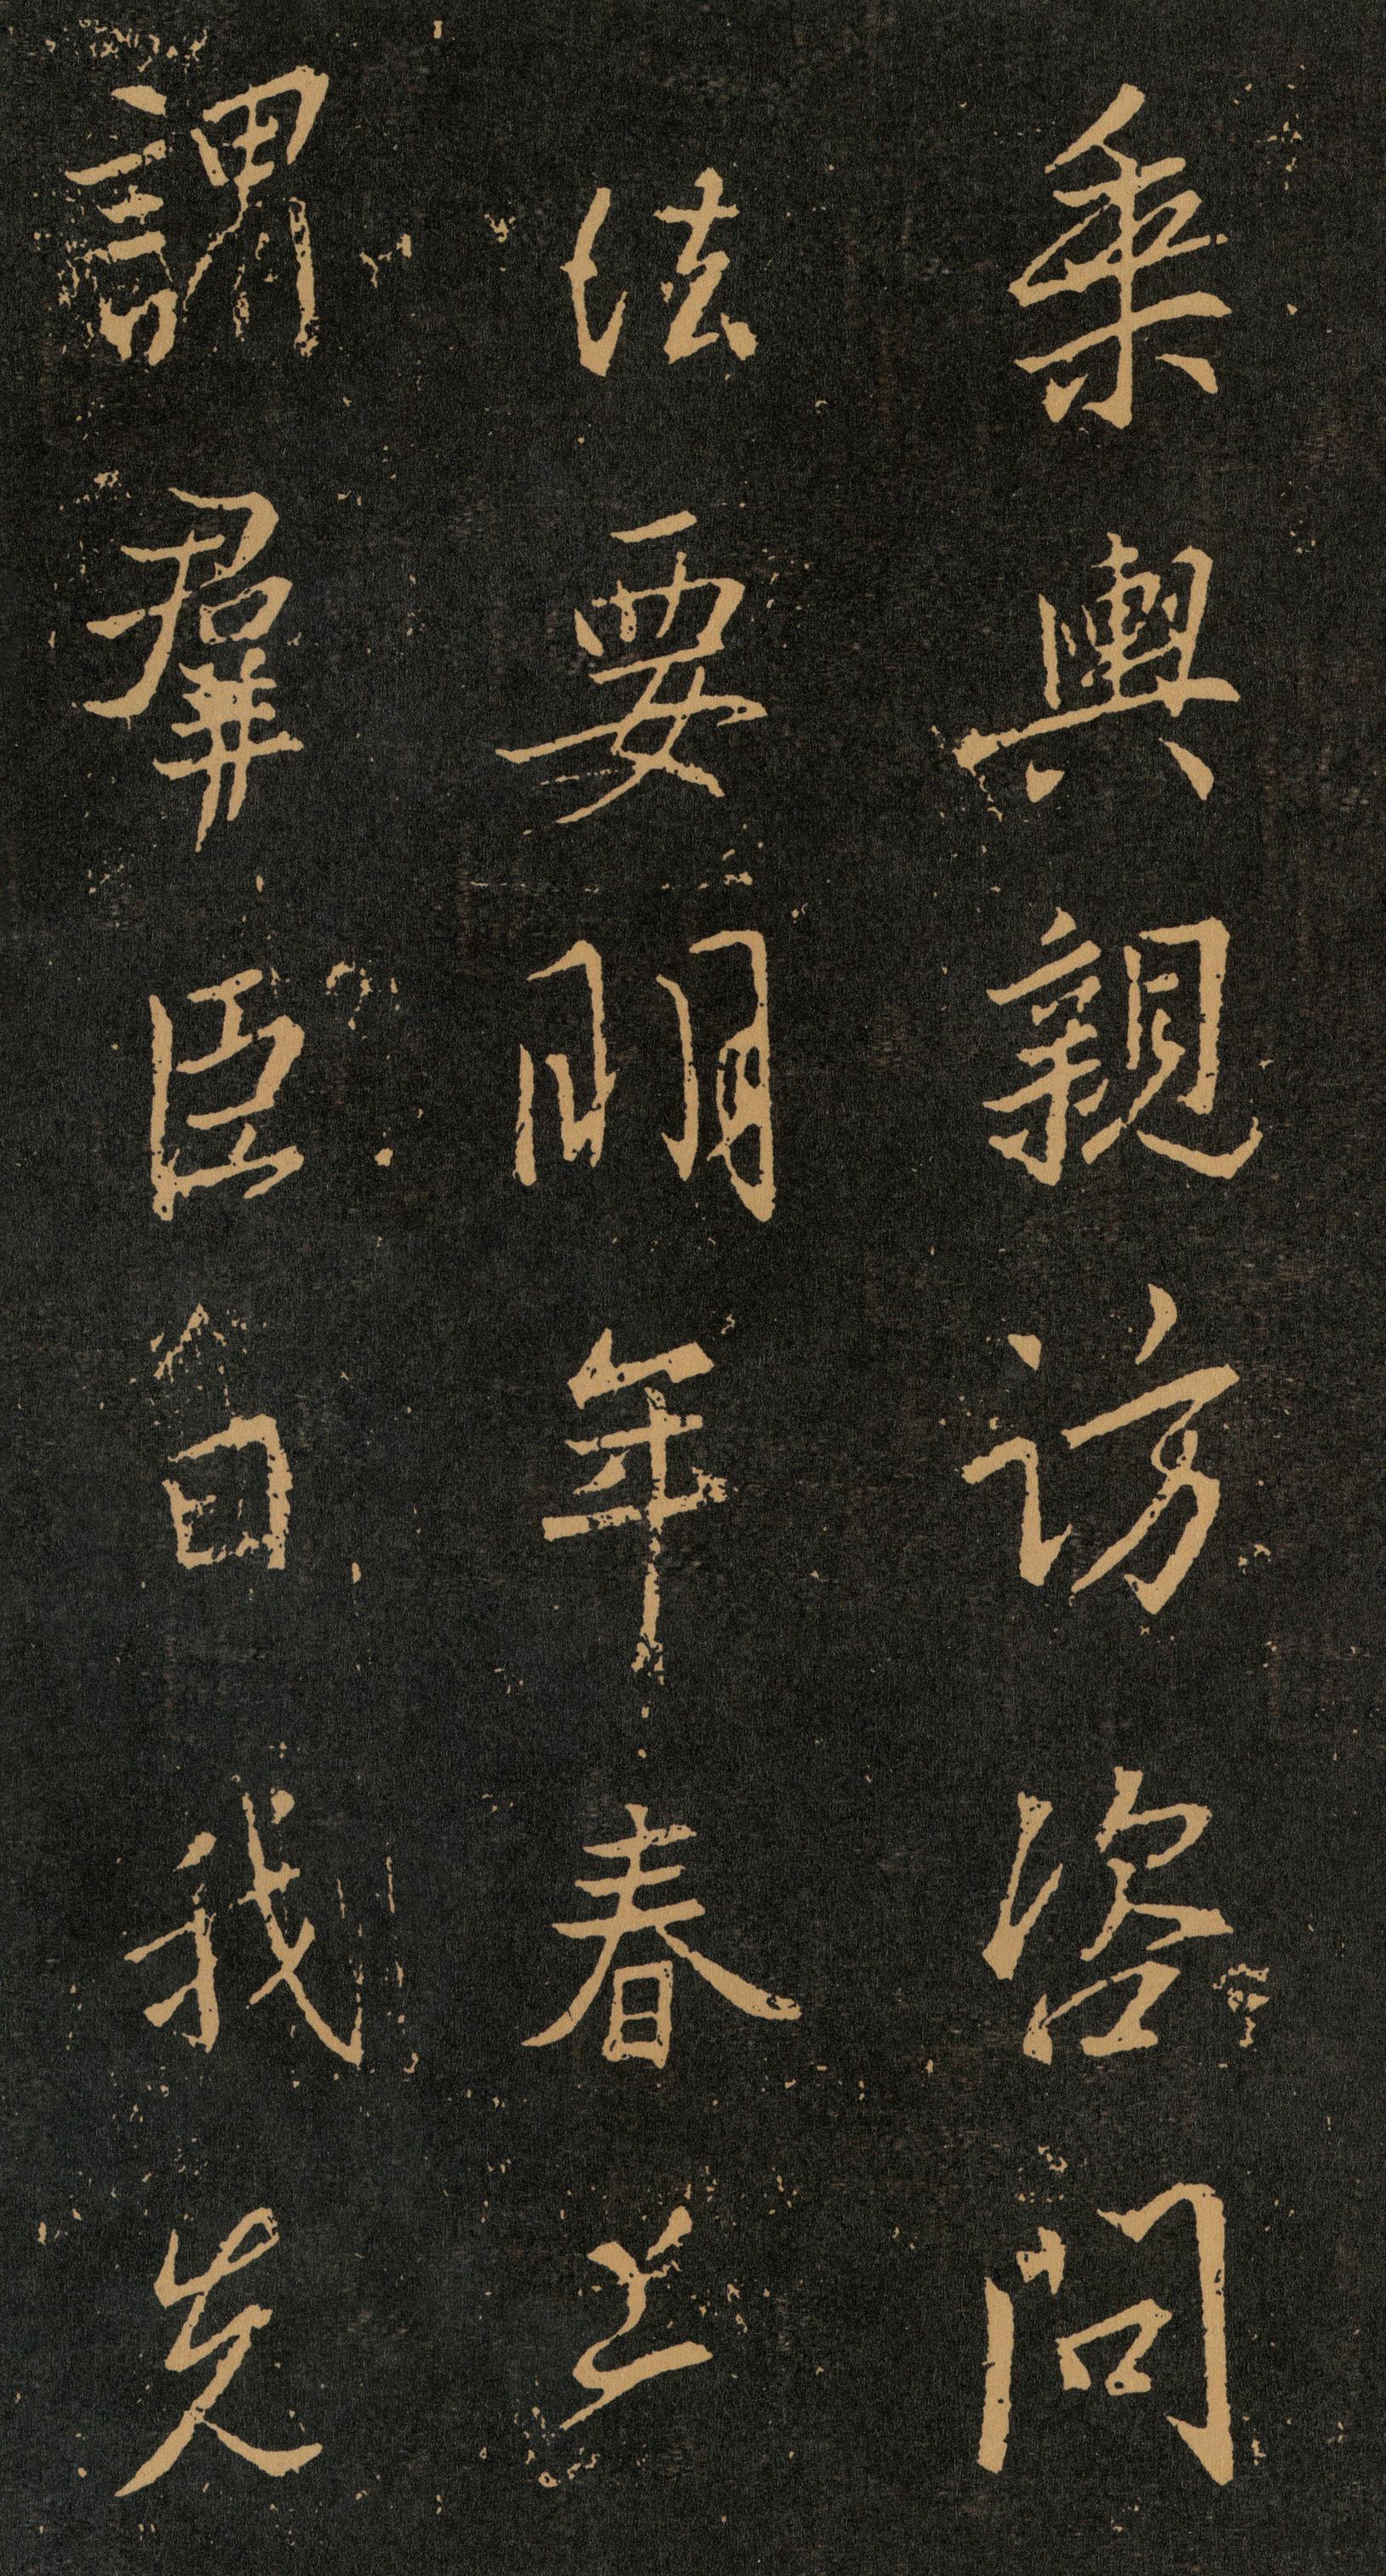 乘輿親訪咨問
法要明年春上
謂羣臣曰我先